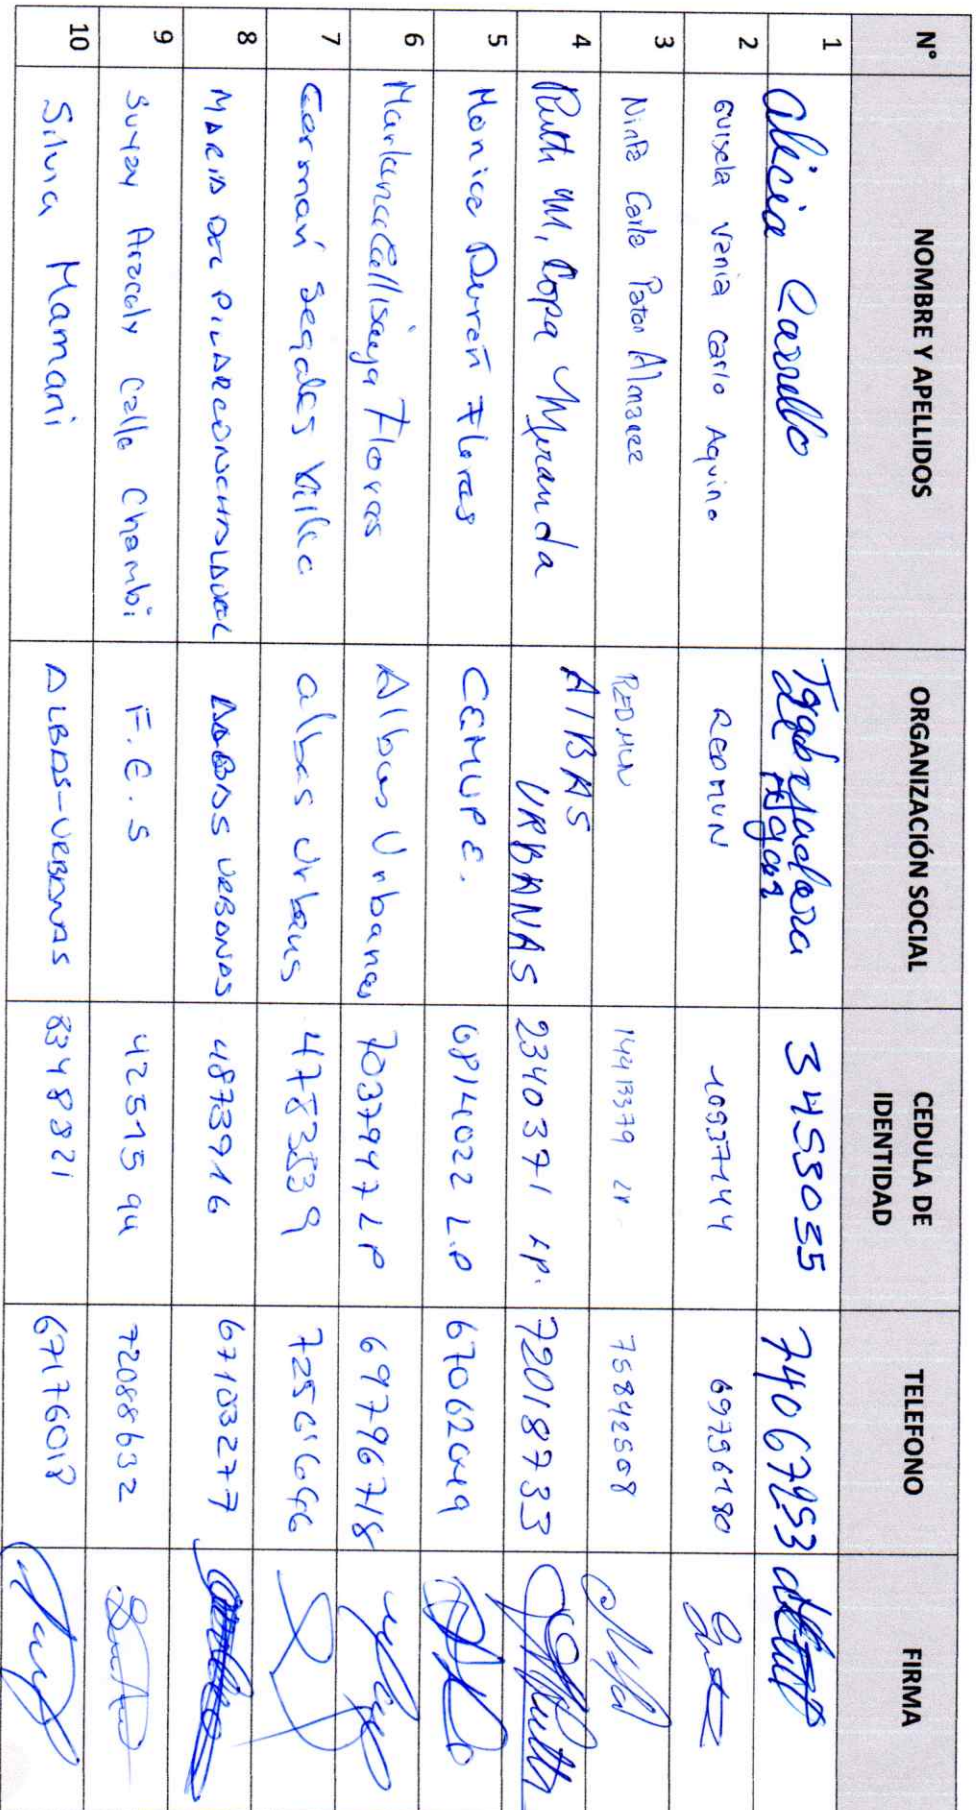 N° NOMBRE Y APELLIDOS ORGANIZACIÓN SOCIAL CEDULA DE IDENTIDAD TELEFONO FIRMA
1 Alicia Carrillo Trabajadora Hogar 3455035 74067253
2 Guisela Vania Carlo Aquino REDMUN 10937144 69736180
3 Ninfa Carla Paton Almaraz REDMUN 14413379 75842508
4 Ruth M. Copa Miranda AlBAS URBANAS 2340371 LP. 72018733
5 Monica Durán Floras CEMUPE. 6814022 L.P 67062049
6 Marlena Callisaya Floras Albas Urbanas 7037947 LP 69796718
7 Carman Segales albas Urbanas 4783539
8 MARIA DEL PILAR URBANAS 4873916 67103277
9 Suyay Aracaly Calle Chambi F.E.S 72088632
10 Silvia Mamani ALBAS-URBANAS 8348821 67176018